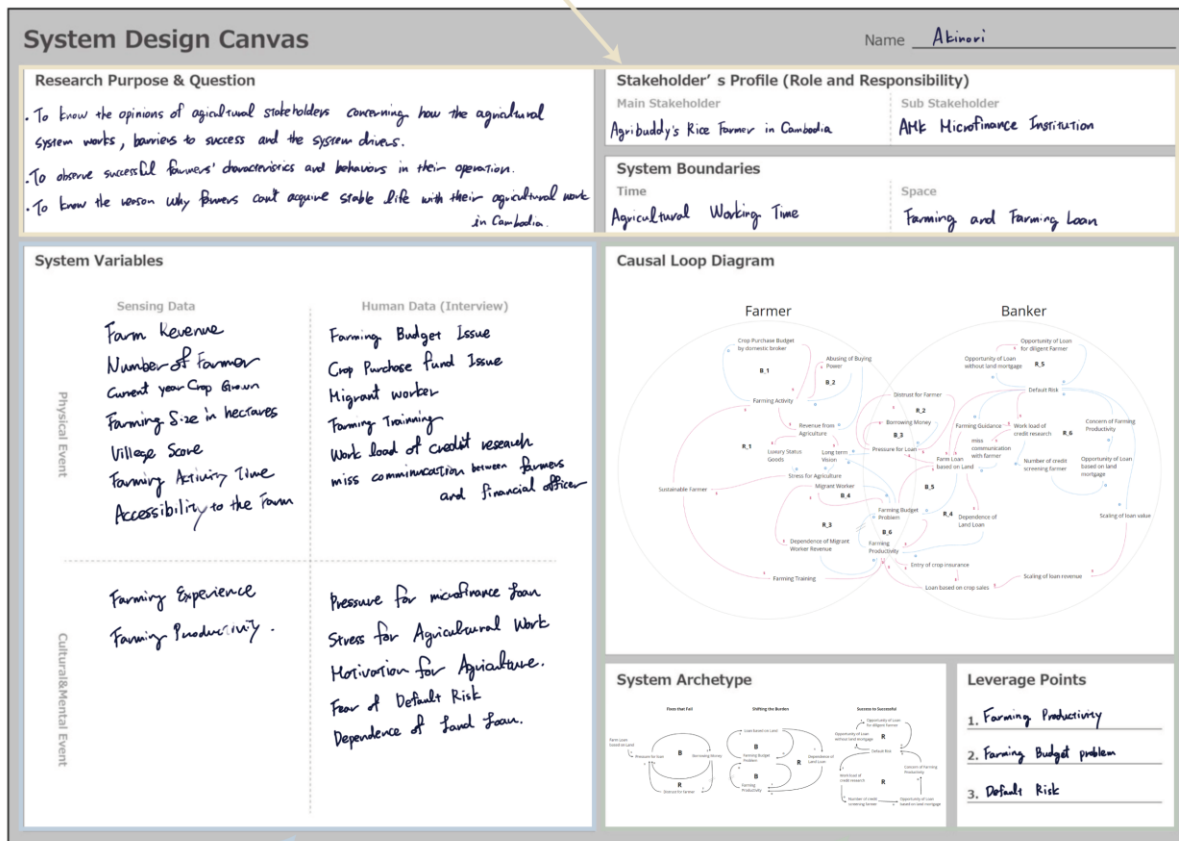 System Design Canvas
Name Akinori
Research Purpose & Question
· To know the opinions of agricultural stakeholders concerning how the agricultural
system works, barriers to success and the system drivers.
· To observe successful farmers' characteristics and behaviors in their operation.
· To know the reason why farmers can't acquire stable life with their agricultural work
in Cambodia.
Stakeholder's Profile (Role and Responsibility)
Main Stakeholder
Agribuddy's Rice Farmer in Cambodia
Sub Stakeholder
AMK Microfinance Institution
System Boundaries
Time
Agricultural Working Time
Space
Farming and Farming Loan
System Variables
Sensing Data
Human Data (Interview)
Physical Event
Farm Revenue
Number of Farmer
Current year Crop Grown
Farming Size in hectares
Village Score
Farming Activity Time
Accessibility to the Farm
Farming Budget Issue
Crop Purchase fund Issue
Migrant worker
Farming Trainning
Work load of credit research
miss communication between farmers
and financial officer
Cultural&Mental Event
Farming Experience
Farming Productivity.
Pressure for microfinance loan
Stress for Agricultural Work
Motivation for Agriculture.
Fear of Default Risk
Dependence of Land Loan.
Causal Loop Diagram
Farmer
Banker
Crop Purchase Budget
by domestic broker
B_1
Abusing of Buying
Power
B_2
Farming Activity
Revenue from
Agriculture
R_1
Luxury Status
Goods
Long term
Vision
Stress for Agriculture
Sustainable Farmer
Migrant Worker
B_4
R_3
Dependence of Migrant
Worker Revenue
Farming Training
Distrust for Farmer
R_2
Borrowing Money
B_3
Pressure for Loan
Farm Loan
based on Land
B_5
Farming Budget
Problem
R_4
B_6
Farming
Productivity
Dependence of
Land Loan
Entry of crop insurance
Loan based on crop sales
Opportunity of Loan
for diligent Farmer
Opportunity of Loan
without land mortgage
R_5
Default Risk
Farming Guidance
Work load of
credit research
miss
communication
with farmer
R_6
Concern of Farming
Productivity
Number of credit
screening farmer
Opportunity of Loan
based on land
mortgage
Scaling of loan value
Scaling of loan revenue
System Archetype
Fixes that Fail
Farm Loan
based on Land
Pressure for loan
B
Borrowing Money
R
Distrust for farmer
Shifting the Burden
Loan based on Land
B
Farming Budget
Problem
B
Farming
Productivity
R
Dependence of
Land Loan
Success to Successful
Opportunity of Loan
for diligent Farmer
Opportunity of Loan
without land mortgage
R
Default Risk
Work load of
credit research
R
Concern of Farming
Productivity
Number of credit
screening farmer
Opportunity of Loan
based on land mortgage
Leverage Points
1. Farming Productivity
2. Farming Budget problem
3. Default Risk